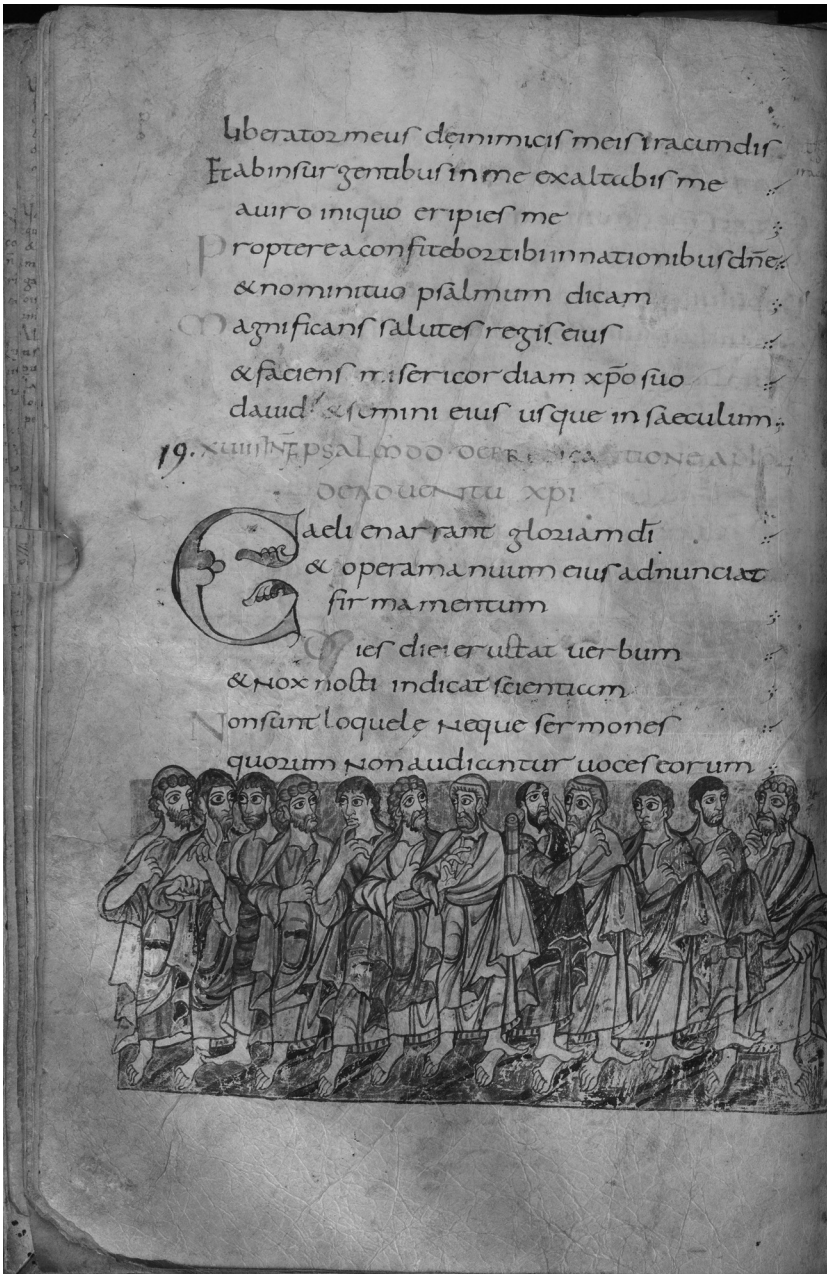 Liberator meus de inimicis meis iracundis
Et ab insurgentibus in me exaltabis me
a uiro iniquo eripies me
Propterea confitebor tibi in nationibus dn̄e
& nomini tuo psalmum dicam
Magnificans salutes regis eius
& faciens misericordiam xp̄o suo
dauid & semini eius usque in saeculum
19. XVIIII IN F̄ PSALM DD
DE ADUENTU XPI
Caeli enarrant gloriam dī
& opera manuum eius adnunciat
firmamentum
Dies diei eructat uerbum
& Nox nocti indicat scientiam
Non sunt loquele Neque sermones
quorum Non audiantur uoces eorum